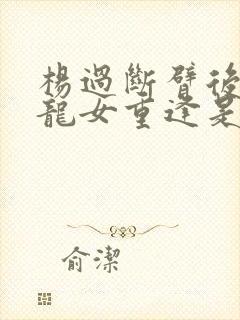 楊過斷臂後
龍女重逢是
俞潔